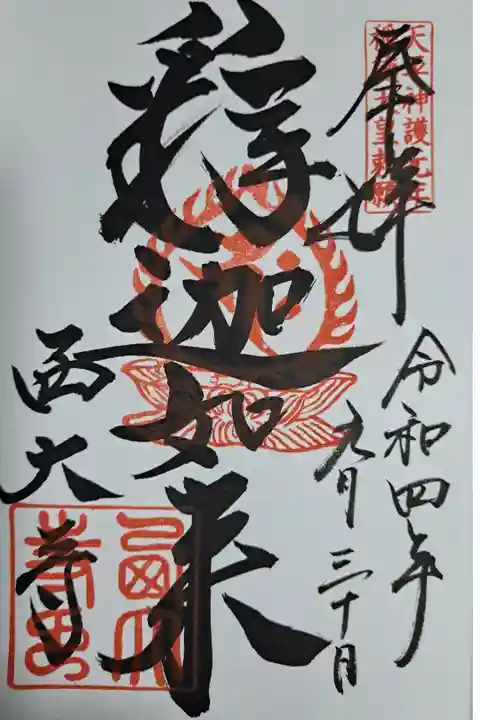 奉拝
令和四年
九月三十日
釈迦如来
西大寺